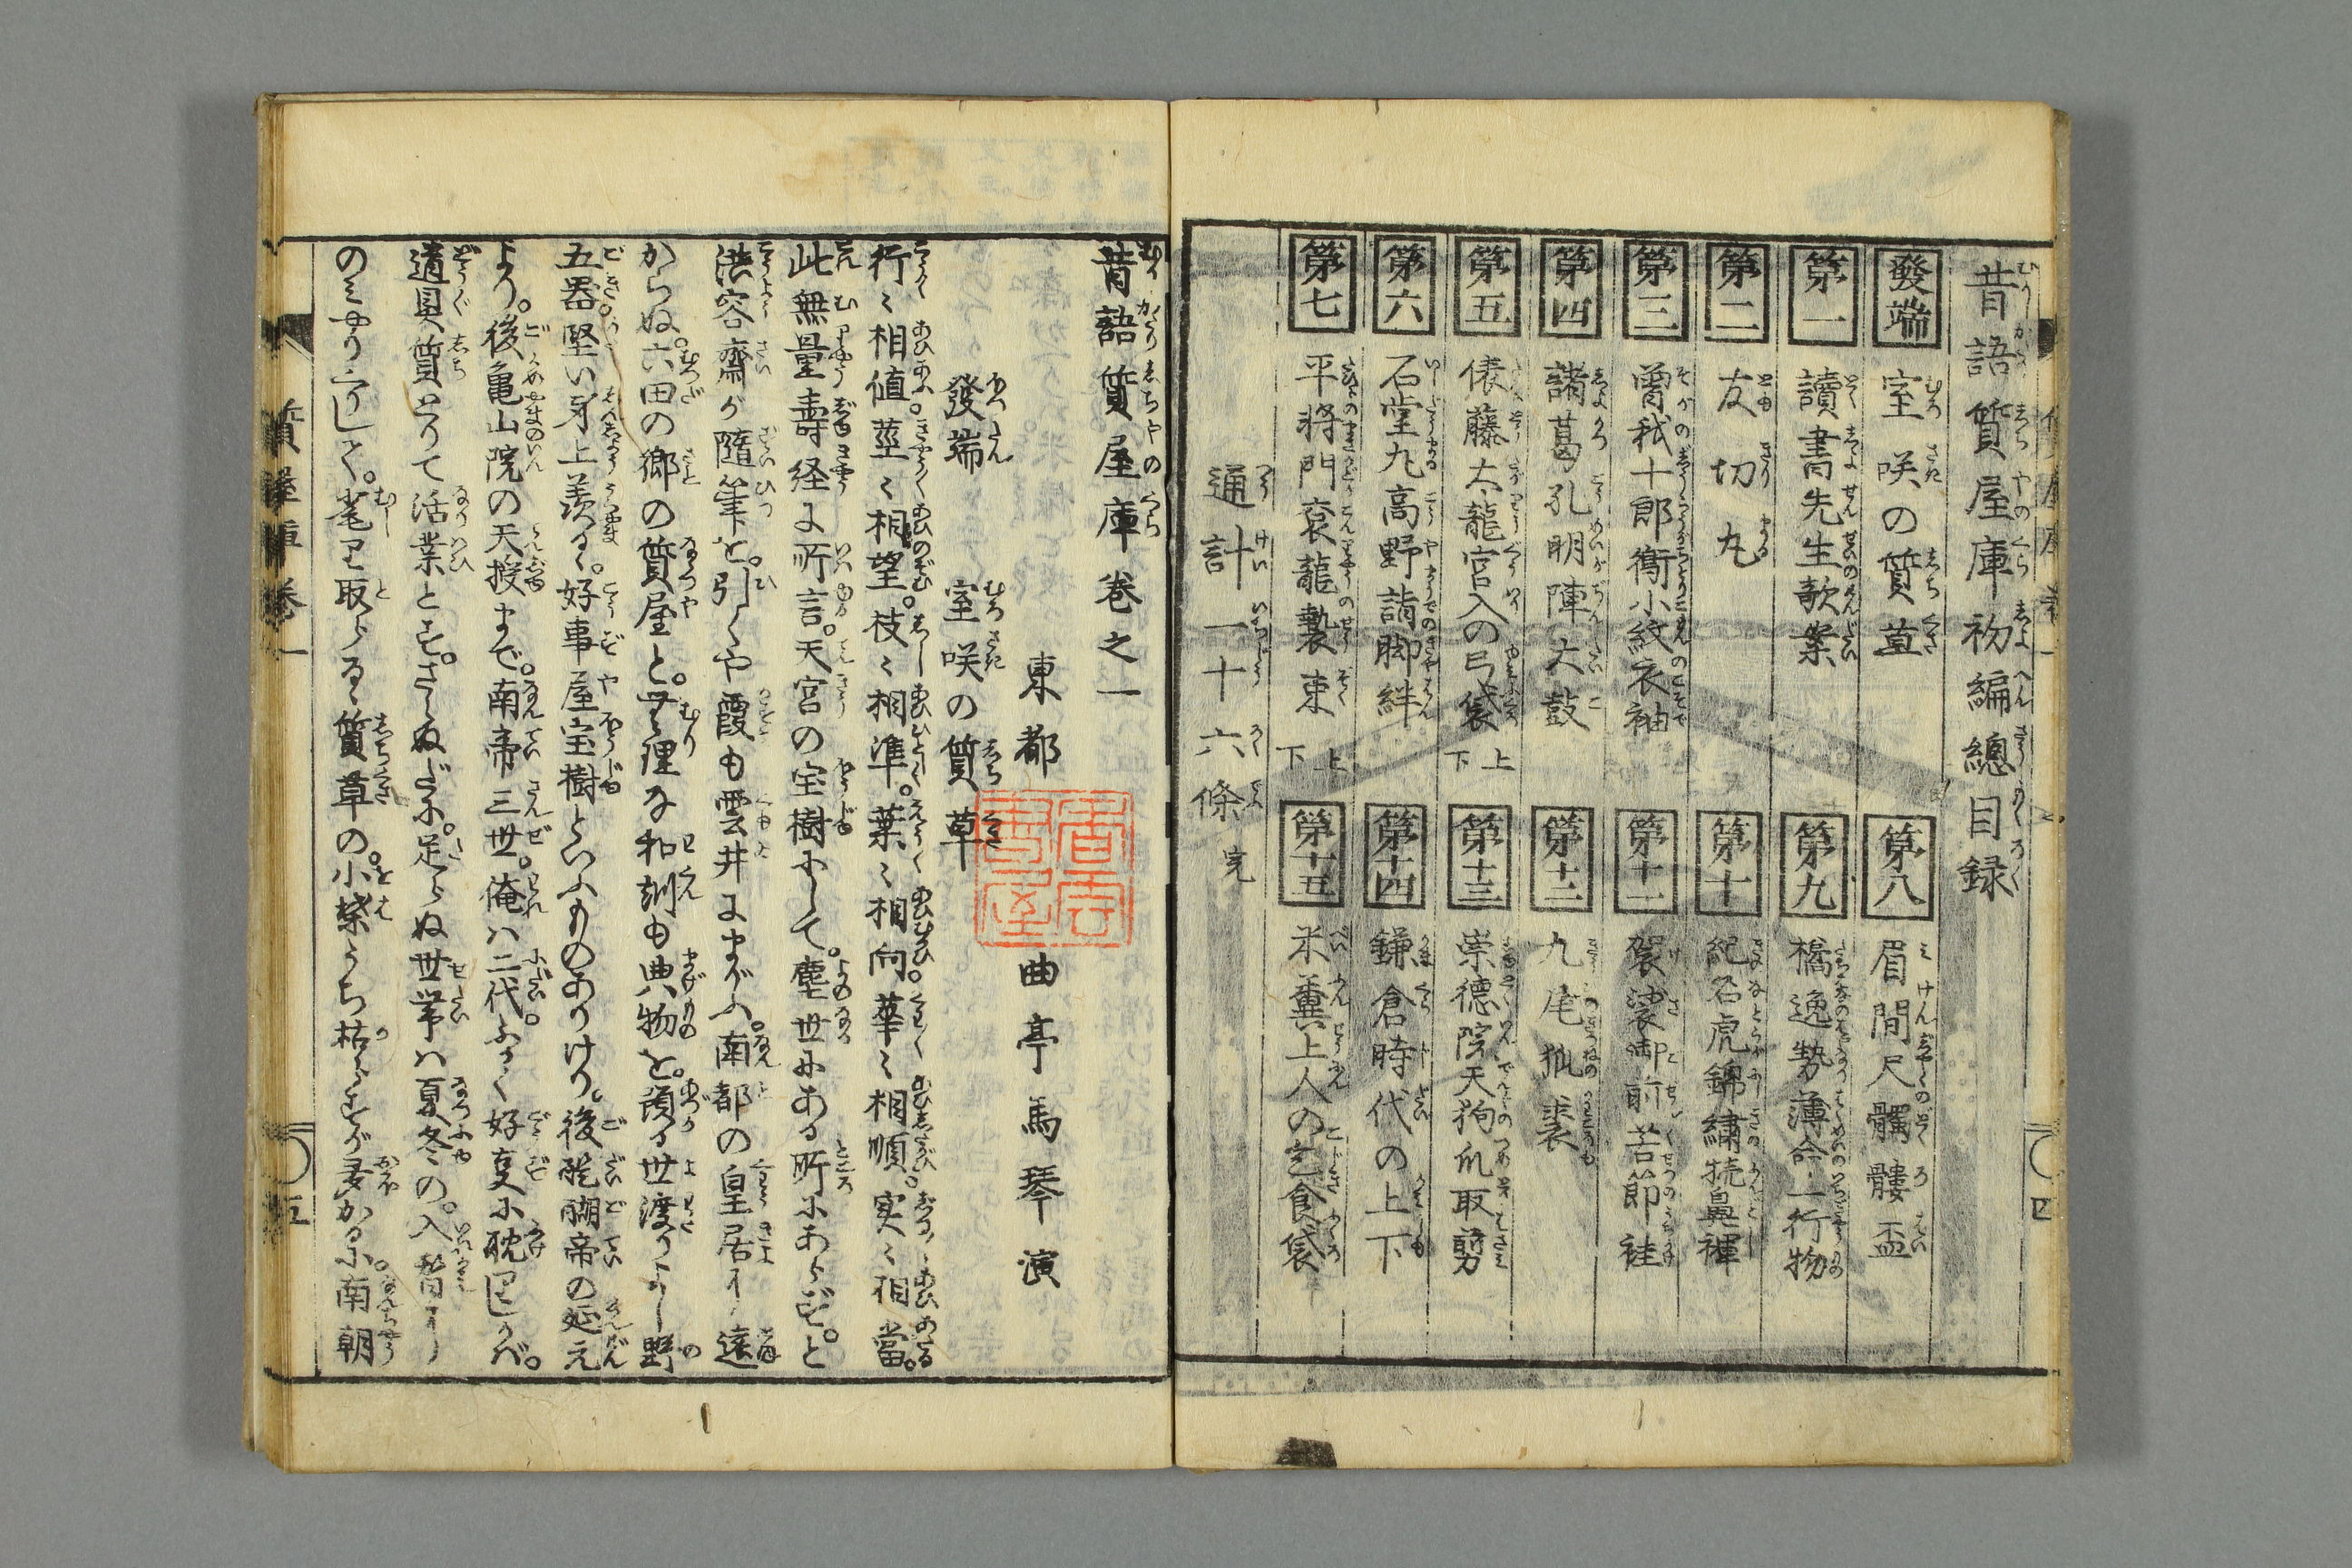 昔語質屋庫初編總目録
發端 室咲の質草
第一 讀書先生歌案
第二 友切丸
第三 曽我十郎衛小紋衣袖
第四 諸葛孔明陣太鼓
第五 俵藤太龍宮入の弓袋 上下
第六 石堂丸高野詣脚絆
第七 平将門袞龍裝束 上下
第八 眉間尺髑髏盃
第九 橘逸勢薄命一行物
第十 紀名虎錦繍犢鼻褌
第十一 袈裟御前苦節袿
第十二 九尾狐裘
第十三 崇徳院天狗爪取剪
第十四 鎌倉時代の上下
第十五 米糞上人の乞食袋
通計一十六條 完
昔語質屋庫巻之一
東都 曲亭馬琴演
發端 室咲の質草
行〻相値莖〻相望。枝〻相準。葉〻相向華〻相順。実〻相當。
此無量壽経に所言。天宮の宝樹にして。塵世にある所にあらず。と
洪容齋が隨筆を。引くや霞も雲井にまがふ。南都の皇居に遠
からぬ。六田の郷の質屋と。無理な和訓も典物を。預る世渡りよし野
五器堅い身上羨る。好事屋宝樹といふものありけり。後醍醐帝の延元
より。後亀山院の天授まで。南帝三世。俺ハ二代ふかく好事に耽りしかバ。
道具質とりて活業とす。さらぬだに。足らぬ世帯ハ夏冬の。入替
のミやりくりして。耄り取らるゝ質草の。小紫うち枯らすが多かるに。南朝
質屋庫巻一
五
四